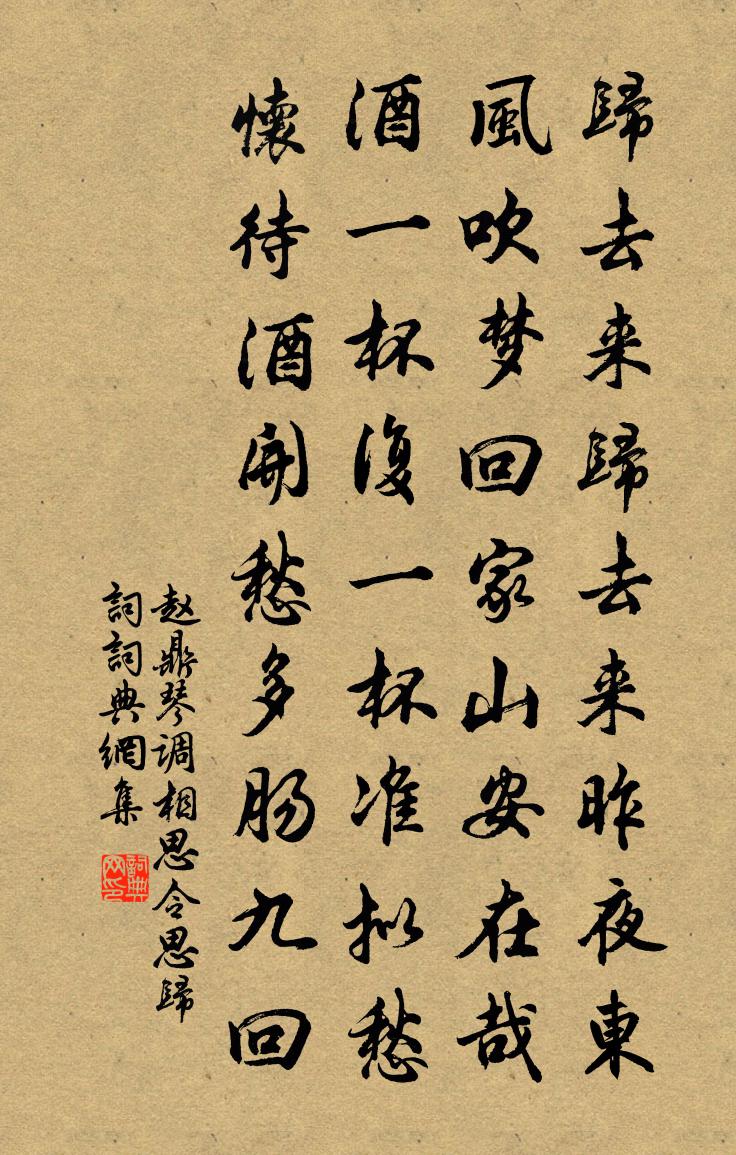 歸去来歸去来昨夜東
風吹梦回家山安在哉
酒一杯復一杯准拟愁
懷待酒開愁多肠九回
赵鼎琴调相思令思歸
詞詞典網集
詞典
网印